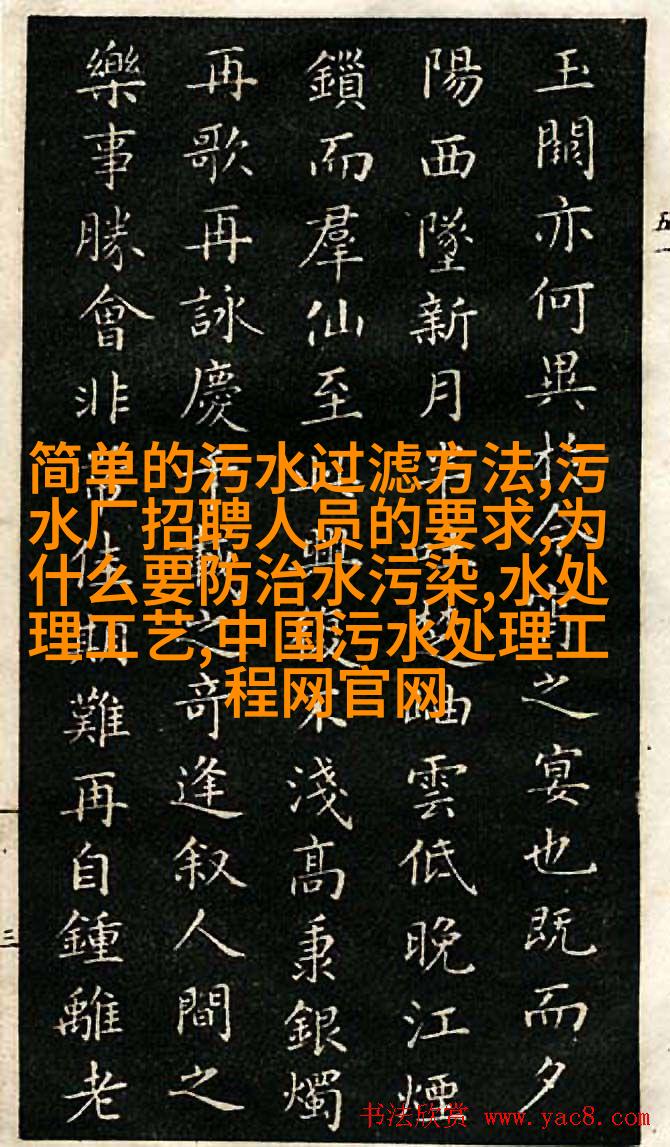 玉闕亦何異於今宵之宴也既而夕
陽西墜新月半楚岫雲低晚江煙
鎖而羣仙至此興復不淺高秉銀燭
再歌再詠慶千載之奇逢叙人間之
樂事勝會非常佳期難再自鍾離老
简单的污水过滤方法,污
水厂招聘人员的要求,为
什么要防治水污染,水处
理工艺,中国污水处理工
程网官网
五
三
书法欣赏 www.yac8.com